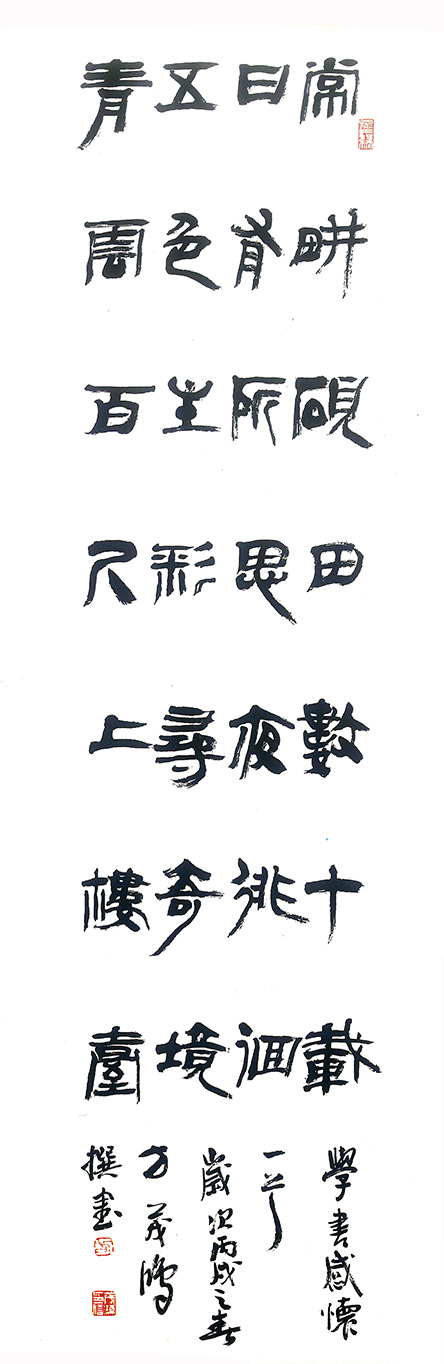 常畊硯田數十載
日有所思夜徘徊
五色生彩尋奇境
青雲百尺上樓臺
學書感懷
一
歲次丙戌之春
方茂
撰書